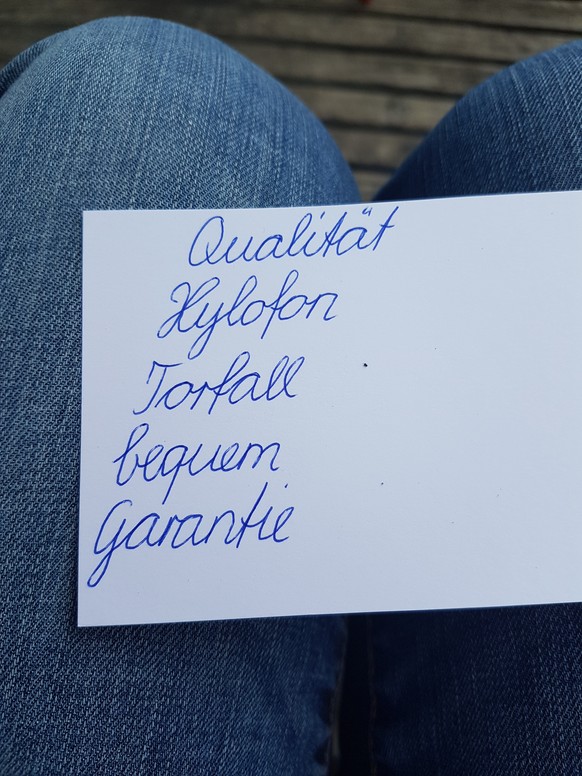 Qualität
Xylofon
Torfall
bequem
Garantie